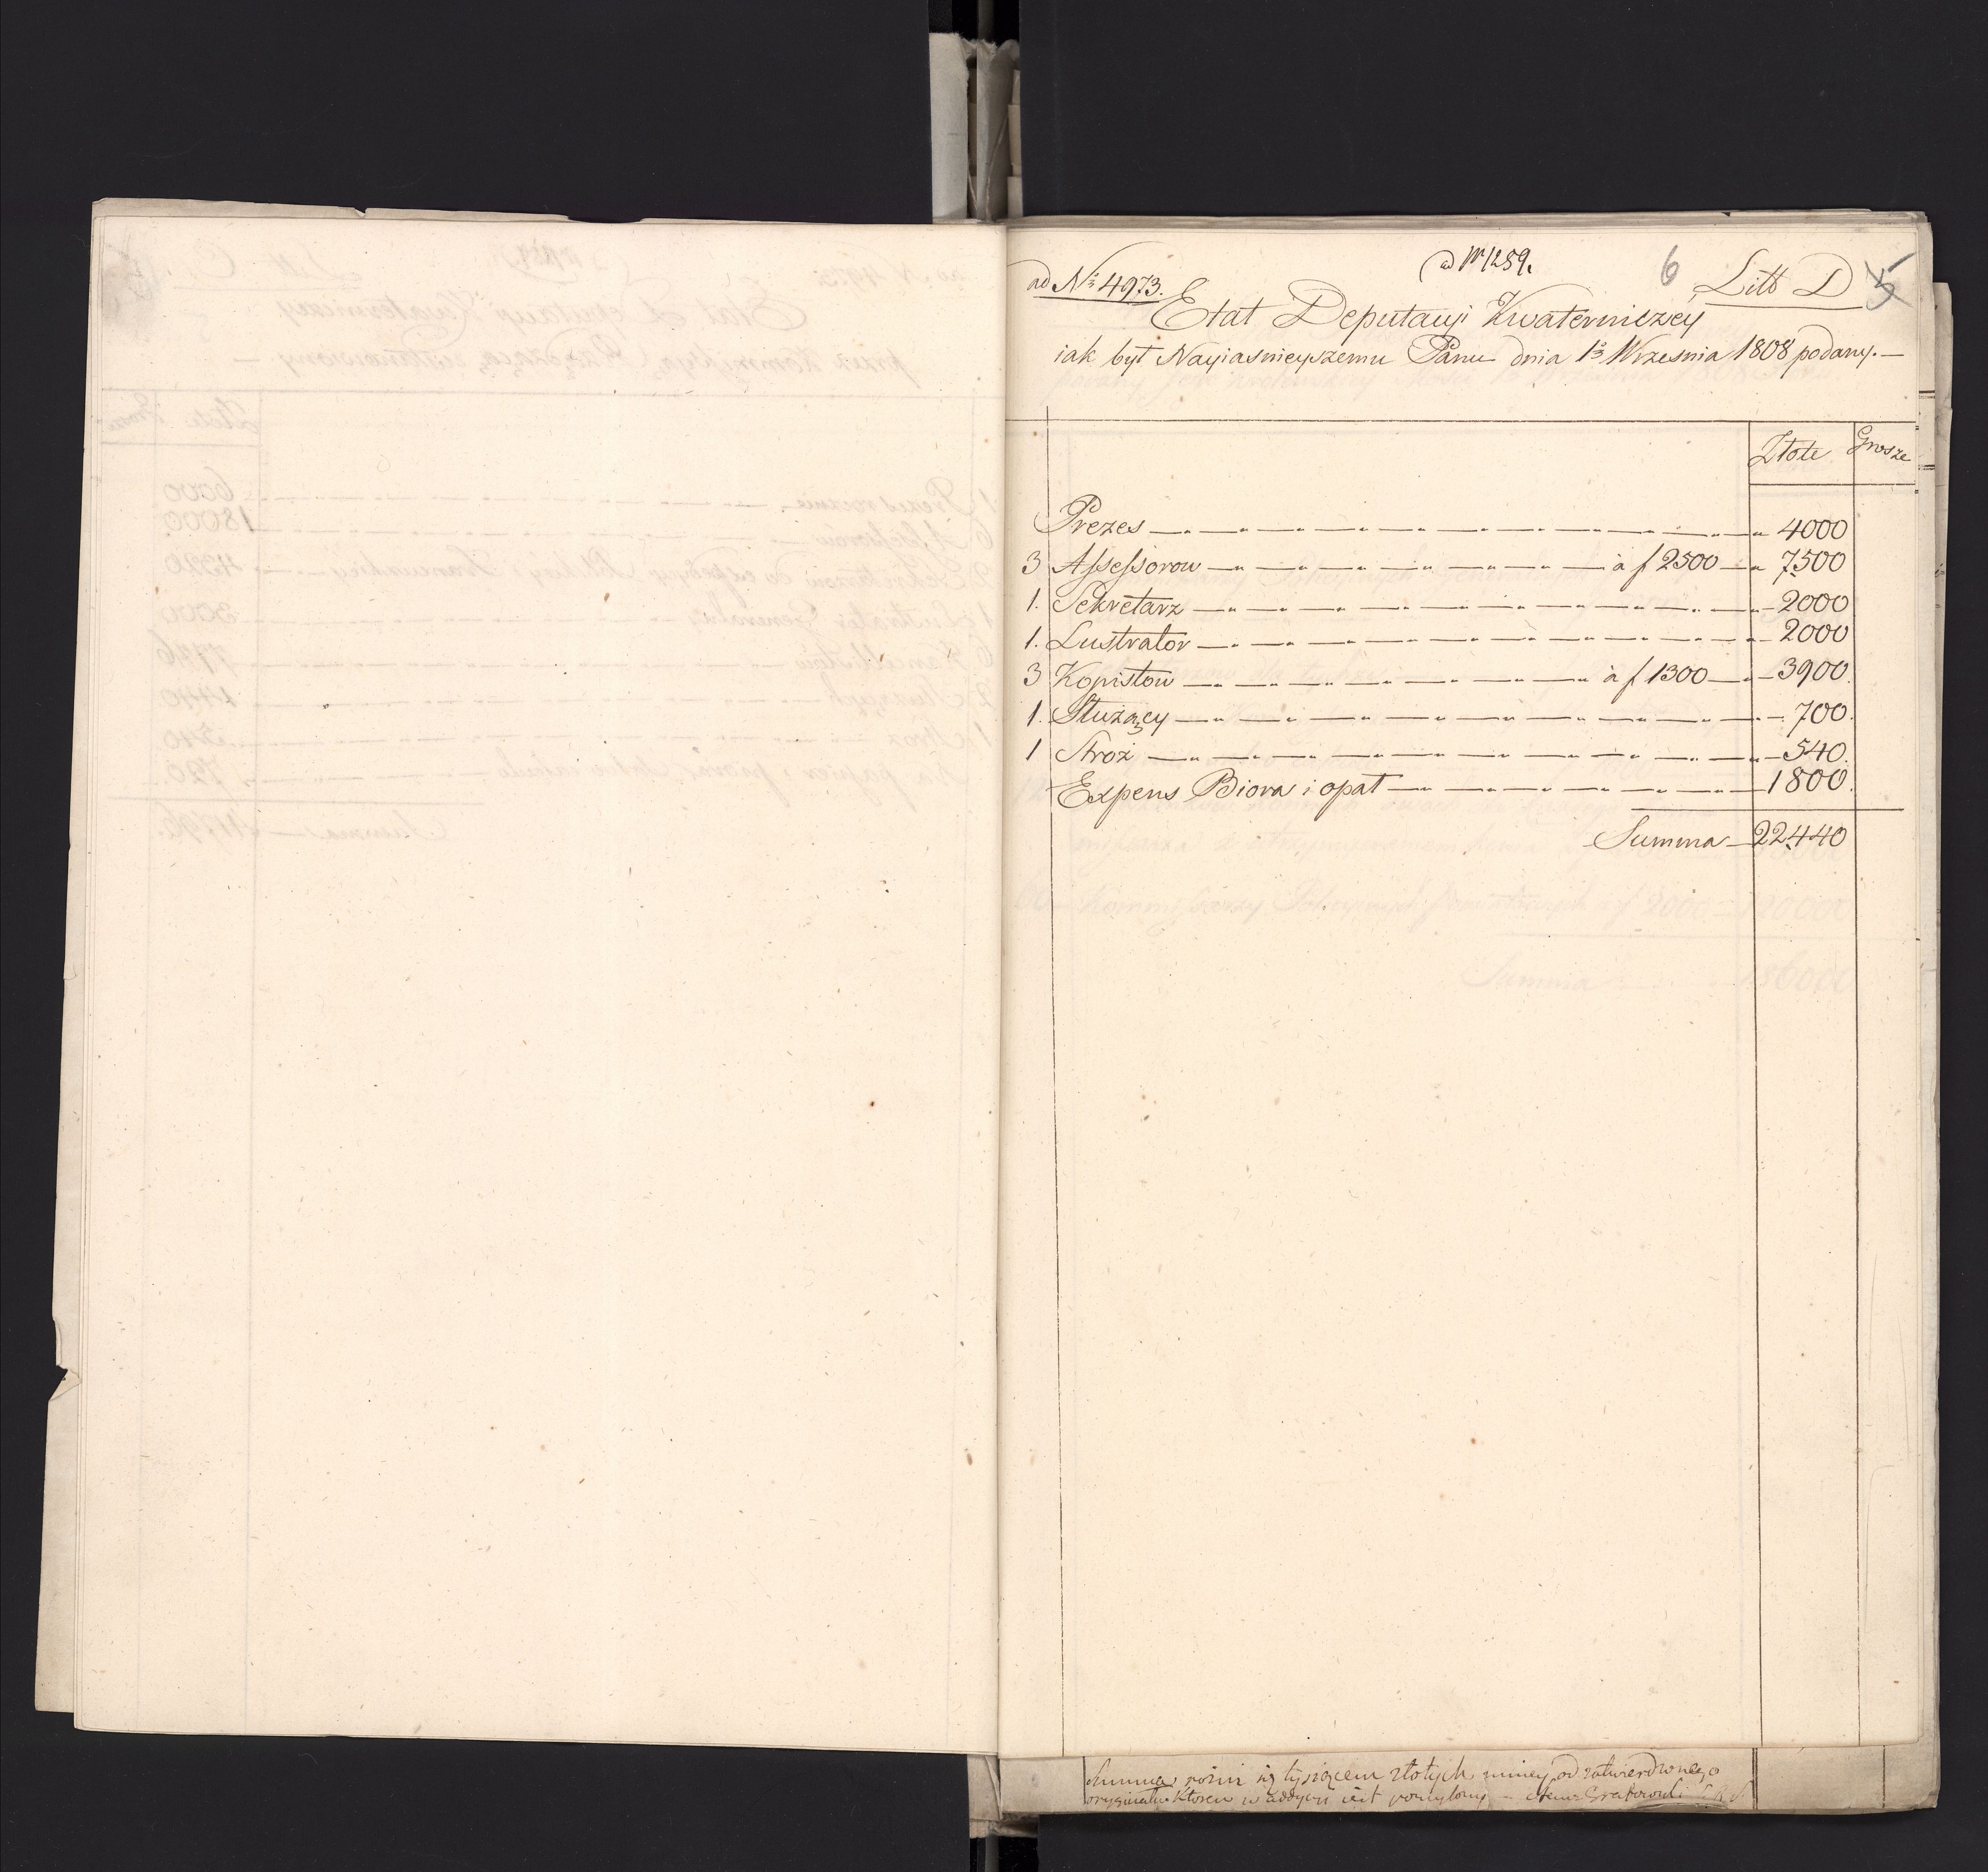 ad Nº 4973.
ad Nr 1289.
6
Litt D
5
Etat Deputacyi Kwaterniczey
iak był Nayiasnieyszemu Panu dnia 13 Wrzesnia 1808 podany.—
Złote Grosze
Prezes — 4000
3 Assessorow — à f 2500 — 7500
1. Sekretarz — 2000
1. Lustrator — 2000
3 Kopistow — à f 1300 — 3900.
1. Służący — 700.
1 Stroż — 540.
Expens Biora i opał — 1800.
Summa — 22440
Summa rożni się tysiącem złotych mniey od zatwierdzonego
oryginału ktoren w addycyi iest pomylony —